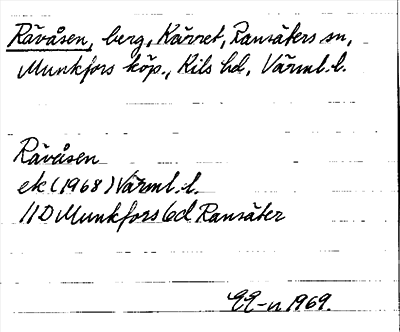 Rävåsen, berg, Kärret, Ransäters sn,
Munkfors köp., Kils hd, Värml. l.
Rävåsen
ek (1968) Värml. l.
11D Munkfors 6d Ransäter
1969.